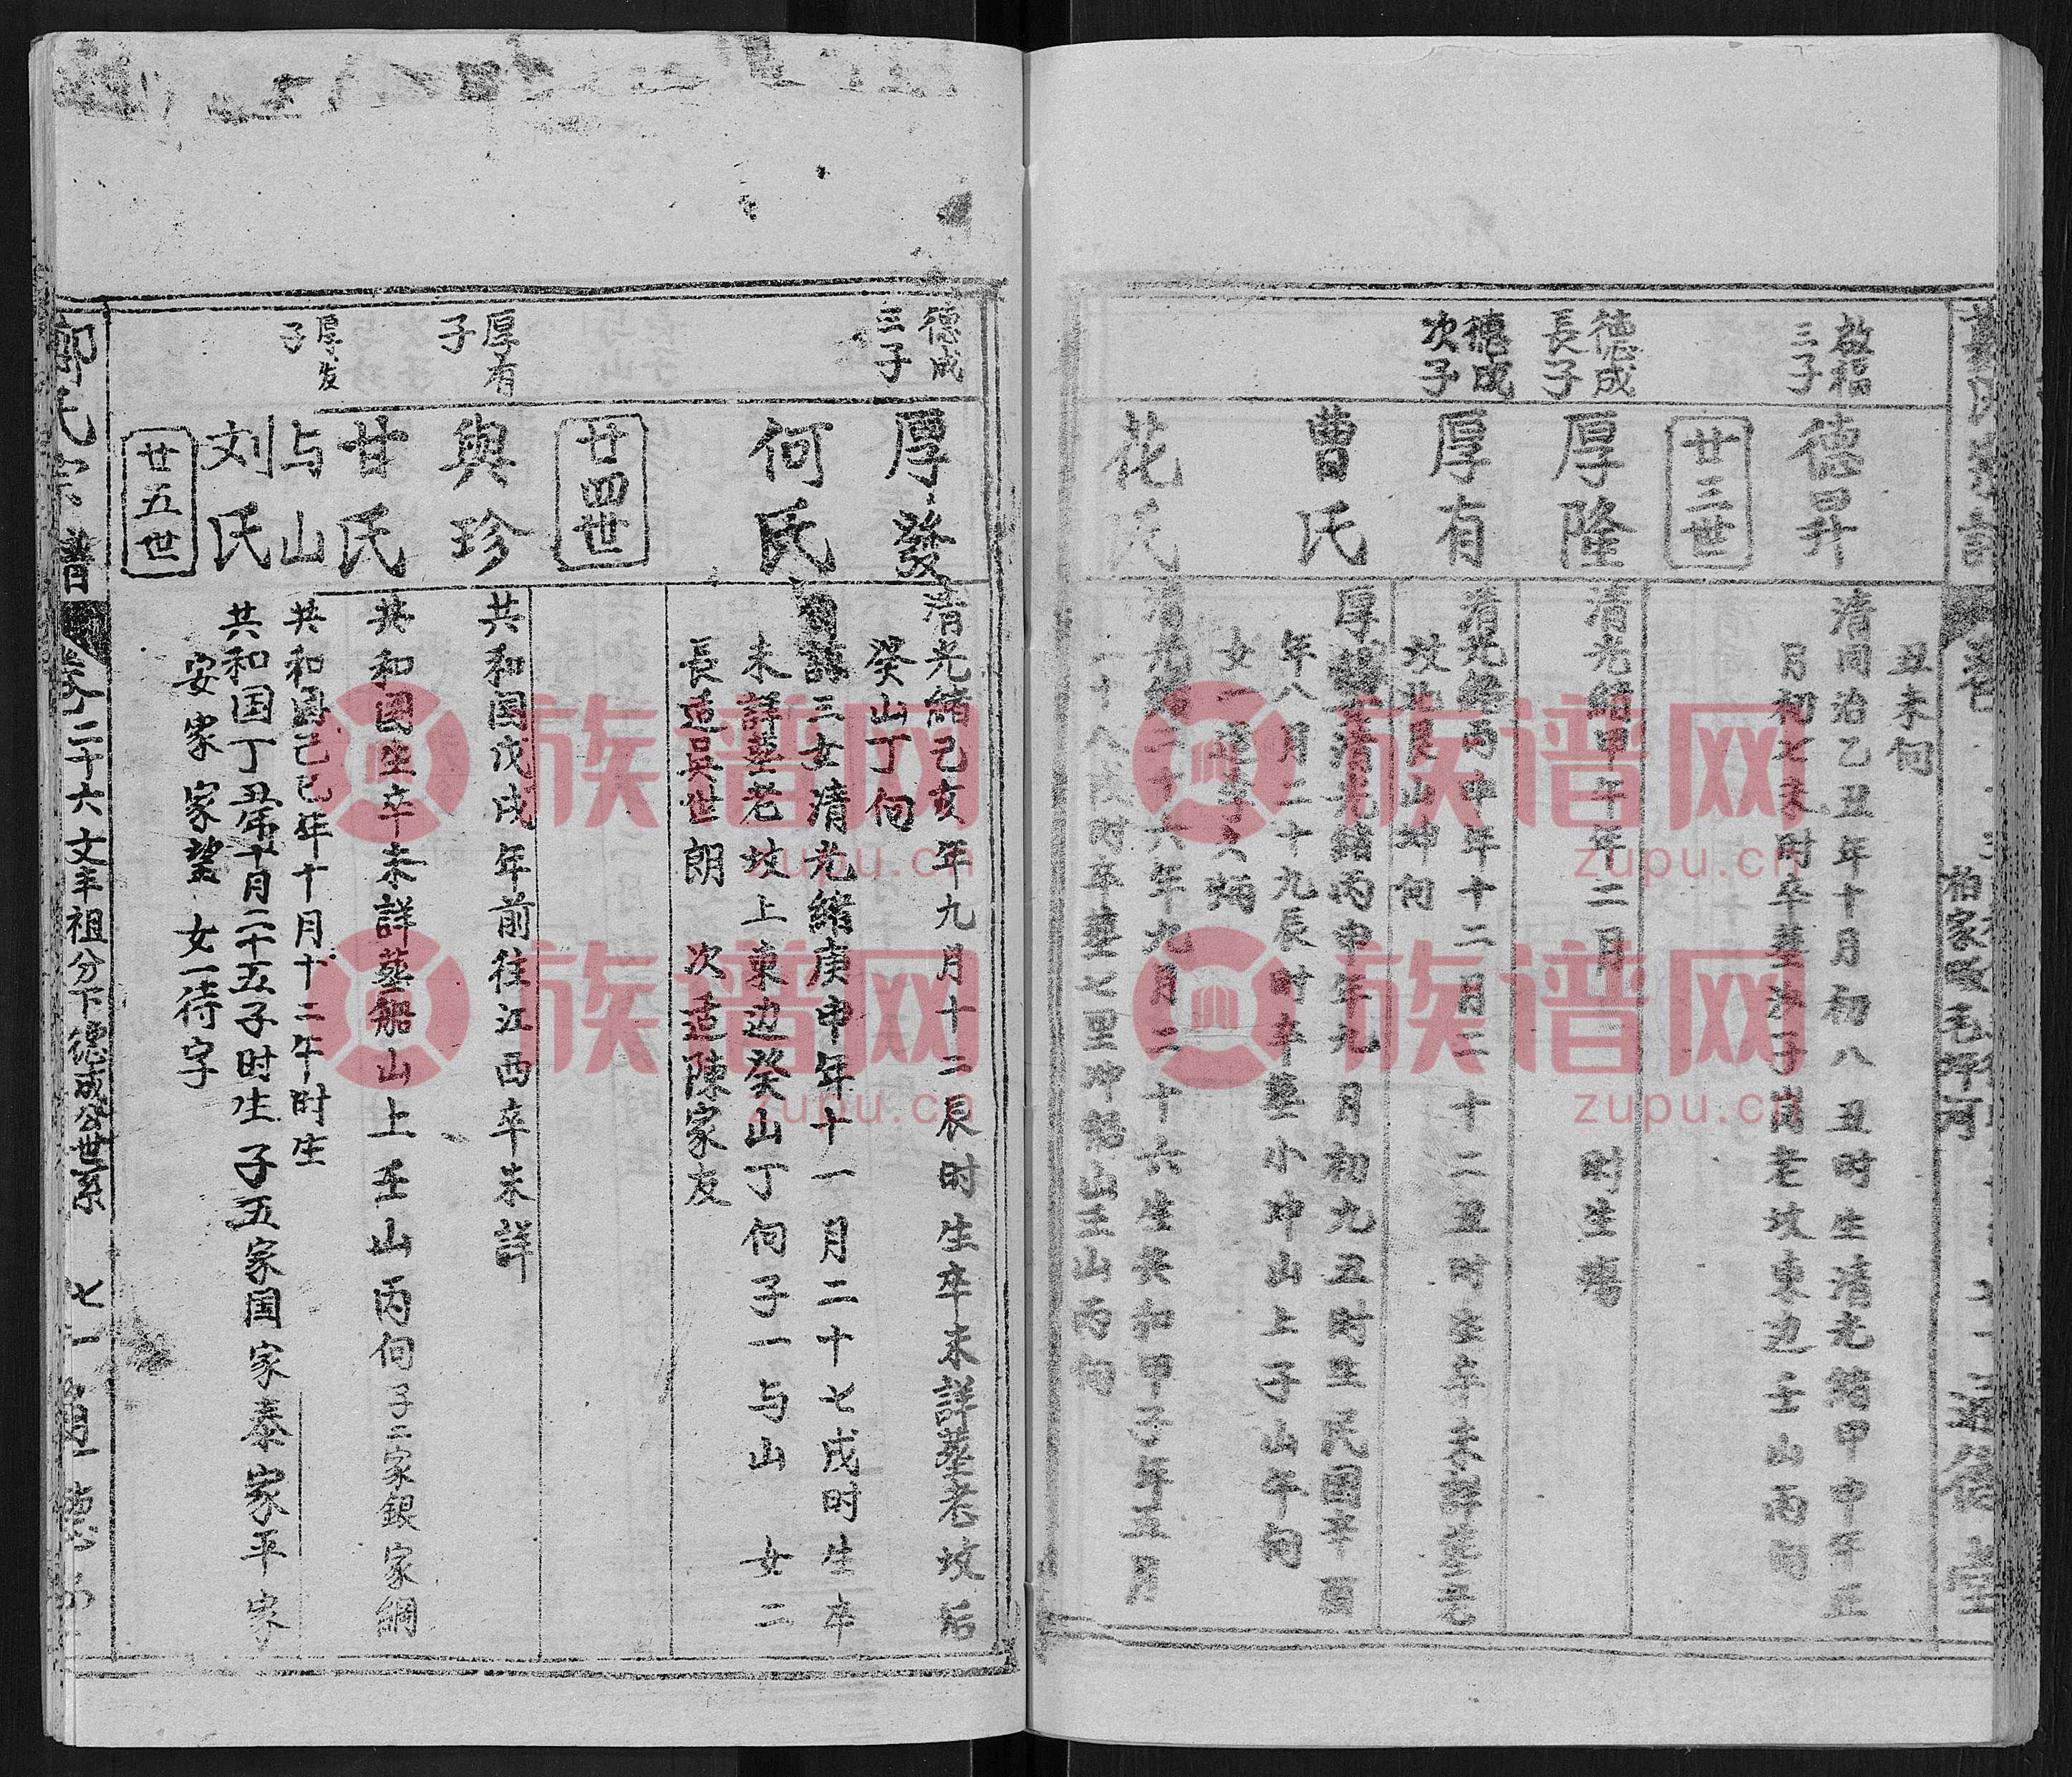 丑未向
啟福三子
德昇
清同治乙丑年十月初八丑时生清光緒甲申年正
月初七未时卒塟沙子崗老坟東边壬山丙向
廿三世
德成長子
厚隆
清光緒甲午年二月 时生殤
德成次子
厚有
清光緒丙申年十二月二十二丑时生卒未詳塟老
坟艮山坤向
曹氏
清光緒丙申年九月初九丑时生民國辛酉
年八月二十九辰时卒塟小冲山上子山午向
女一
花氏
清光緒二十六年九月二十六生共和甲子年五月
二十八戌时卒塟七里冲船山壬山丙向
德成三子
厚發
清光緒己亥年九月十二辰时生卒未詳塟老坟后
癸山丁向
何氏
三女清光緒庚申年十一月二十七戌时生卒
未詳塟老坟上東边癸山丁向子一与山 女二
長适吴世朗 次适陳家友
廿四世
厚有子
興珍
共和国戊戌年前往江西卒未詳
甘氏
共和国生卒未詳塟船山上壬山丙向子二家銀家綱
厚发子
与山
共和国己巳年十月十二午时生
刘氏
共和国丁丑年十月二十五子时生 子五家国家泰家平家
安家家望 女一待字
廿五世
氏宗譜
卷二十六文丰祖分下德成公世系 七一
族谱网
zupu.cn
族谱网
zupu.cn
族谱网
zupu.cn
族谱网
zupu.cn